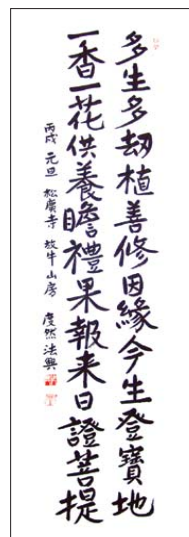 多生多劫植善修因緣今生登寶地
一香一花供養瞻禮果報来日證菩提
丙戌 元旦 松廣寺 放牛山房 度然 法興